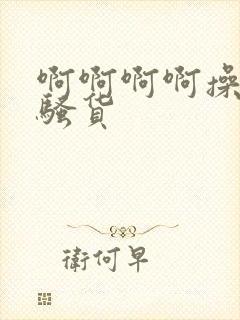 啊啊啊啊操
骚货
衛何早